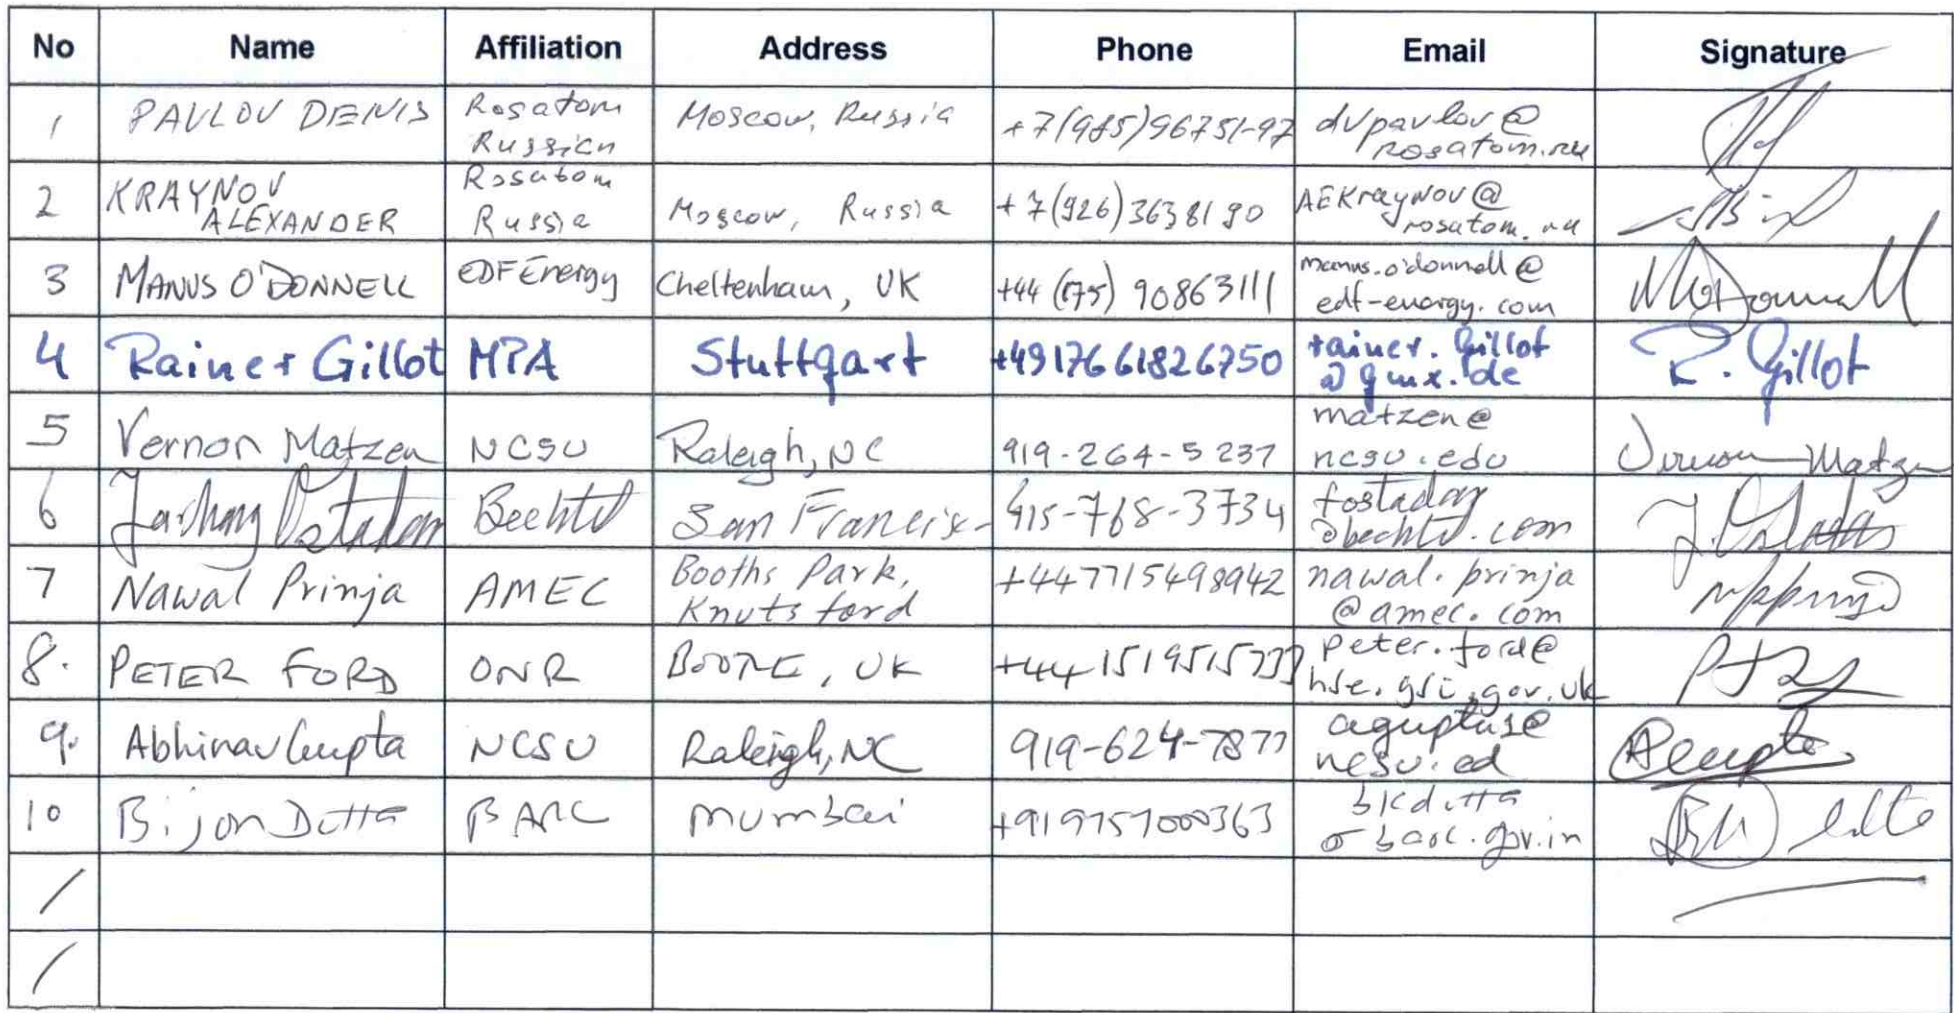 No Name Affiliation Address Phone Email Signature
1 PAVLOV DENIS Rosatom Russian Moscow, Russia +7(985)96751-97 dvpavlov@ rosatom.ru
2 KRAYNOV ALEXANDER Rosatom Russia Moscow, Russia +7(926)3638190 AEKraynov@ rosatom.ru
3 MANUS O'DONNELL EDF Energy Cheltenham, UK +44 (175) 90863111 manus.o'donnell@ edf-energy.com
4 Rainer Gillot MPA Stuttgart +4917661826750 rainer.Gillot @gmx.de R. Gillot
5 Vernon Matzen NCSU Raleigh, NC 919-264-5237 matzen@ ncsu.edu Vernon Matzen
6 Bechtel San Francisc- 415-768-3734 fostadan @bechtel.com
7 Nawal Prinja AMEC Booths Park, Knutsford +447715498942 nawal.prinja @amec.com
8. PETER FORD ONR BOOTLE, UK +441519515733 peter.ford@ hse.gsi.gov.uk
9. Abhinav Gupta NCSU Raleigh, NC 919-624-7877 agupta1@ ncsu.ed AGupta
10 Bijon Dutta BARC Mumbai +919757000363 bkdutta @barc.gov.in
/
/